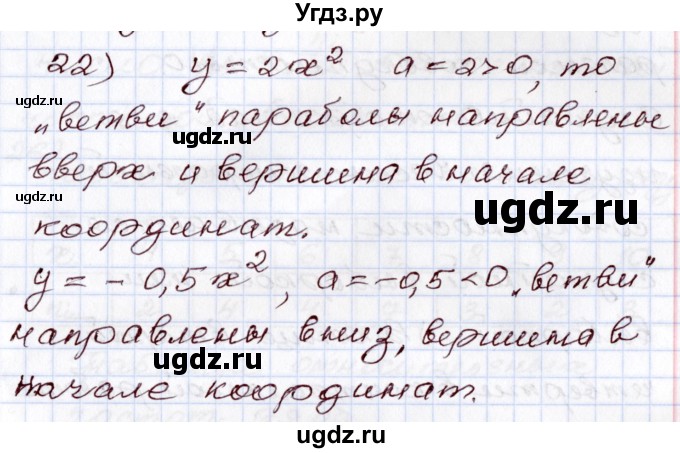 Угдз.ру
22) y = 2x² a = 2 > 0, то
„ветви“ параболы направлены
вверх и вершина в начале
координат.
y = - 0,5x², a = -0,5 < 0 „ветви“
направлены вниз, вершина в
начале координат.
ugdz.ru
ugdz.ru
ugdz.ru
ugdz.ru
ugdz.ru
ugdz.ru
ugdz.ru
ugdz.ru